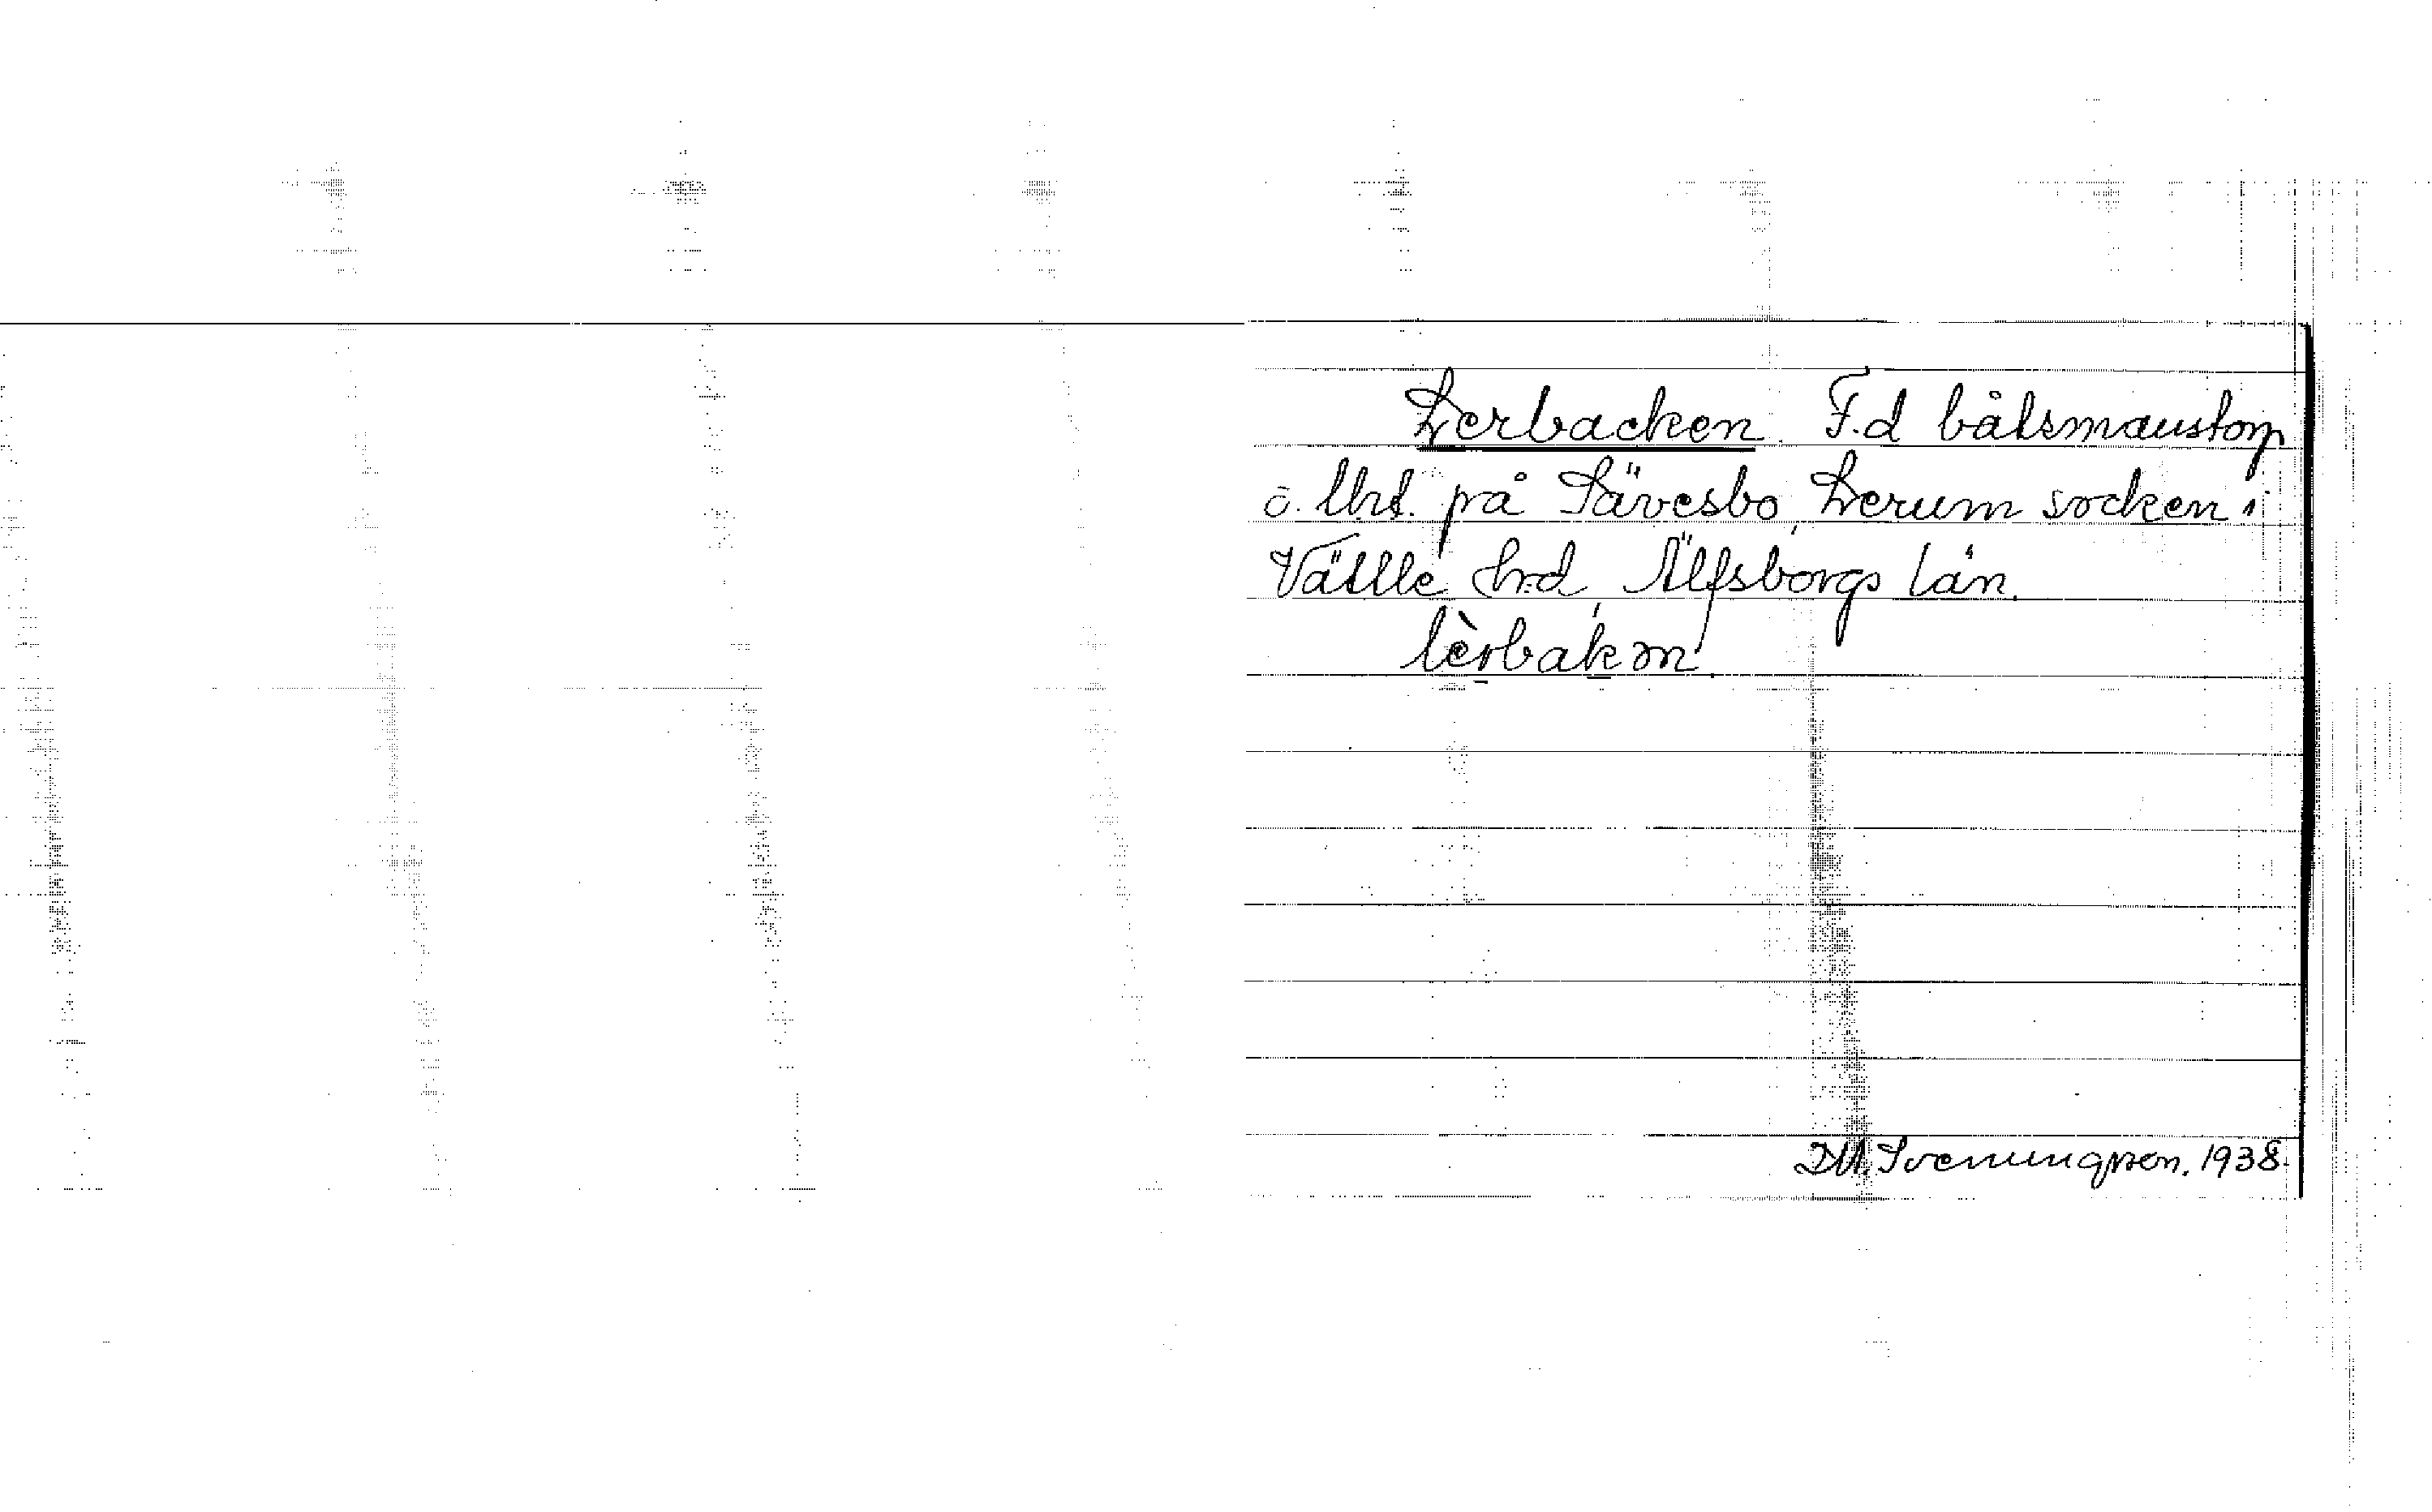 Lerbacken. F.d båtsmanstorp
o. lht. på Sävesbo, Lerum socken i
Vättle hrd, Älfsborgs län.
lèrbakən.
D.A. Svenningson. 1938.